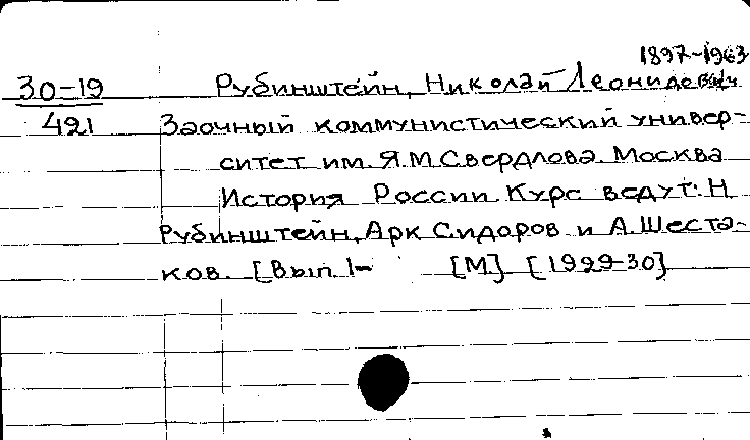 1897-1963
30-19 Рубинштейн, Николай Леонидович
421 Заочный коммунистический универ-
ситет им. Я.М.Свердлова. Москва
История России. Курс ведут: Н.
Рубинштейн, Арк Сидоров и А.Шеста-
ков. [Вып 1- [М] [1929-30]